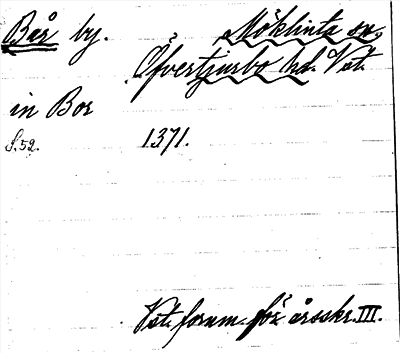 Bår by. Möklinta sn,
Öfvertjurbo hd. Vst.
in Bor
S. 52. 1371.
Vst. fornm. för. årsskr. III.